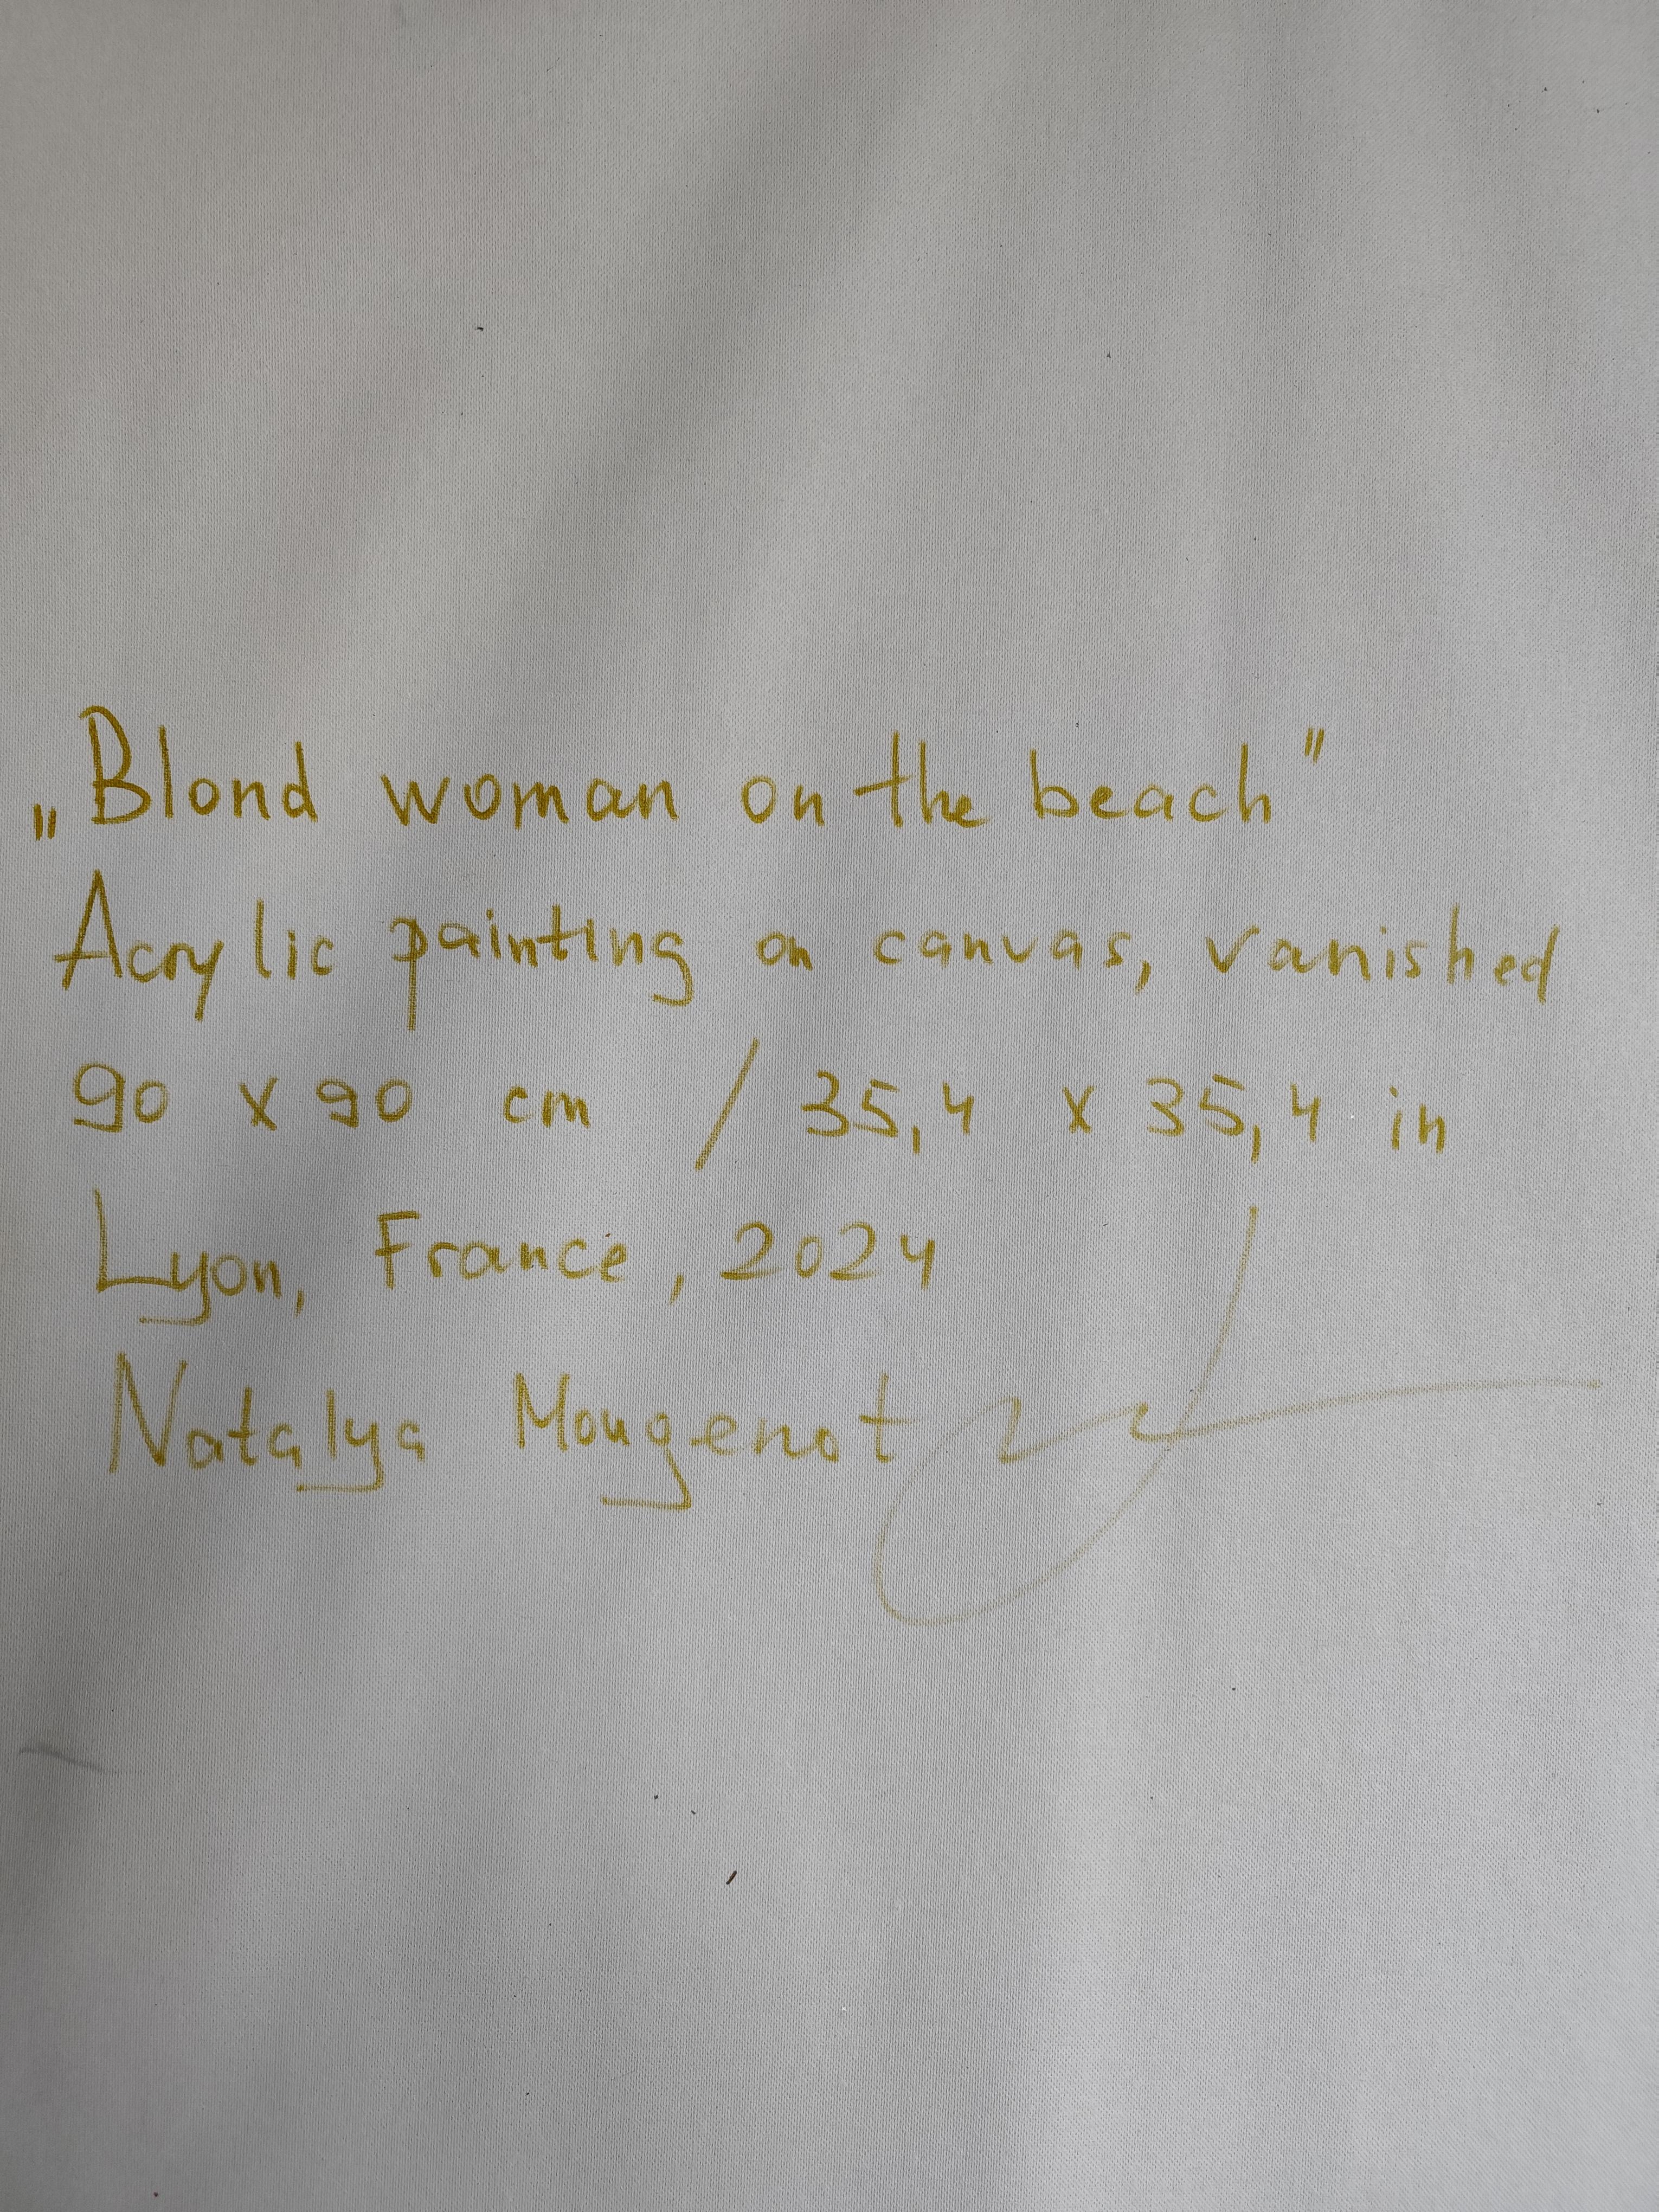 „Blond woman on the beach"
Acrylic painting on canvas, vanished
90 x 90 cm / 35,4 x 35,4 in
Lyon, France, 2024
Natalya Mougenot